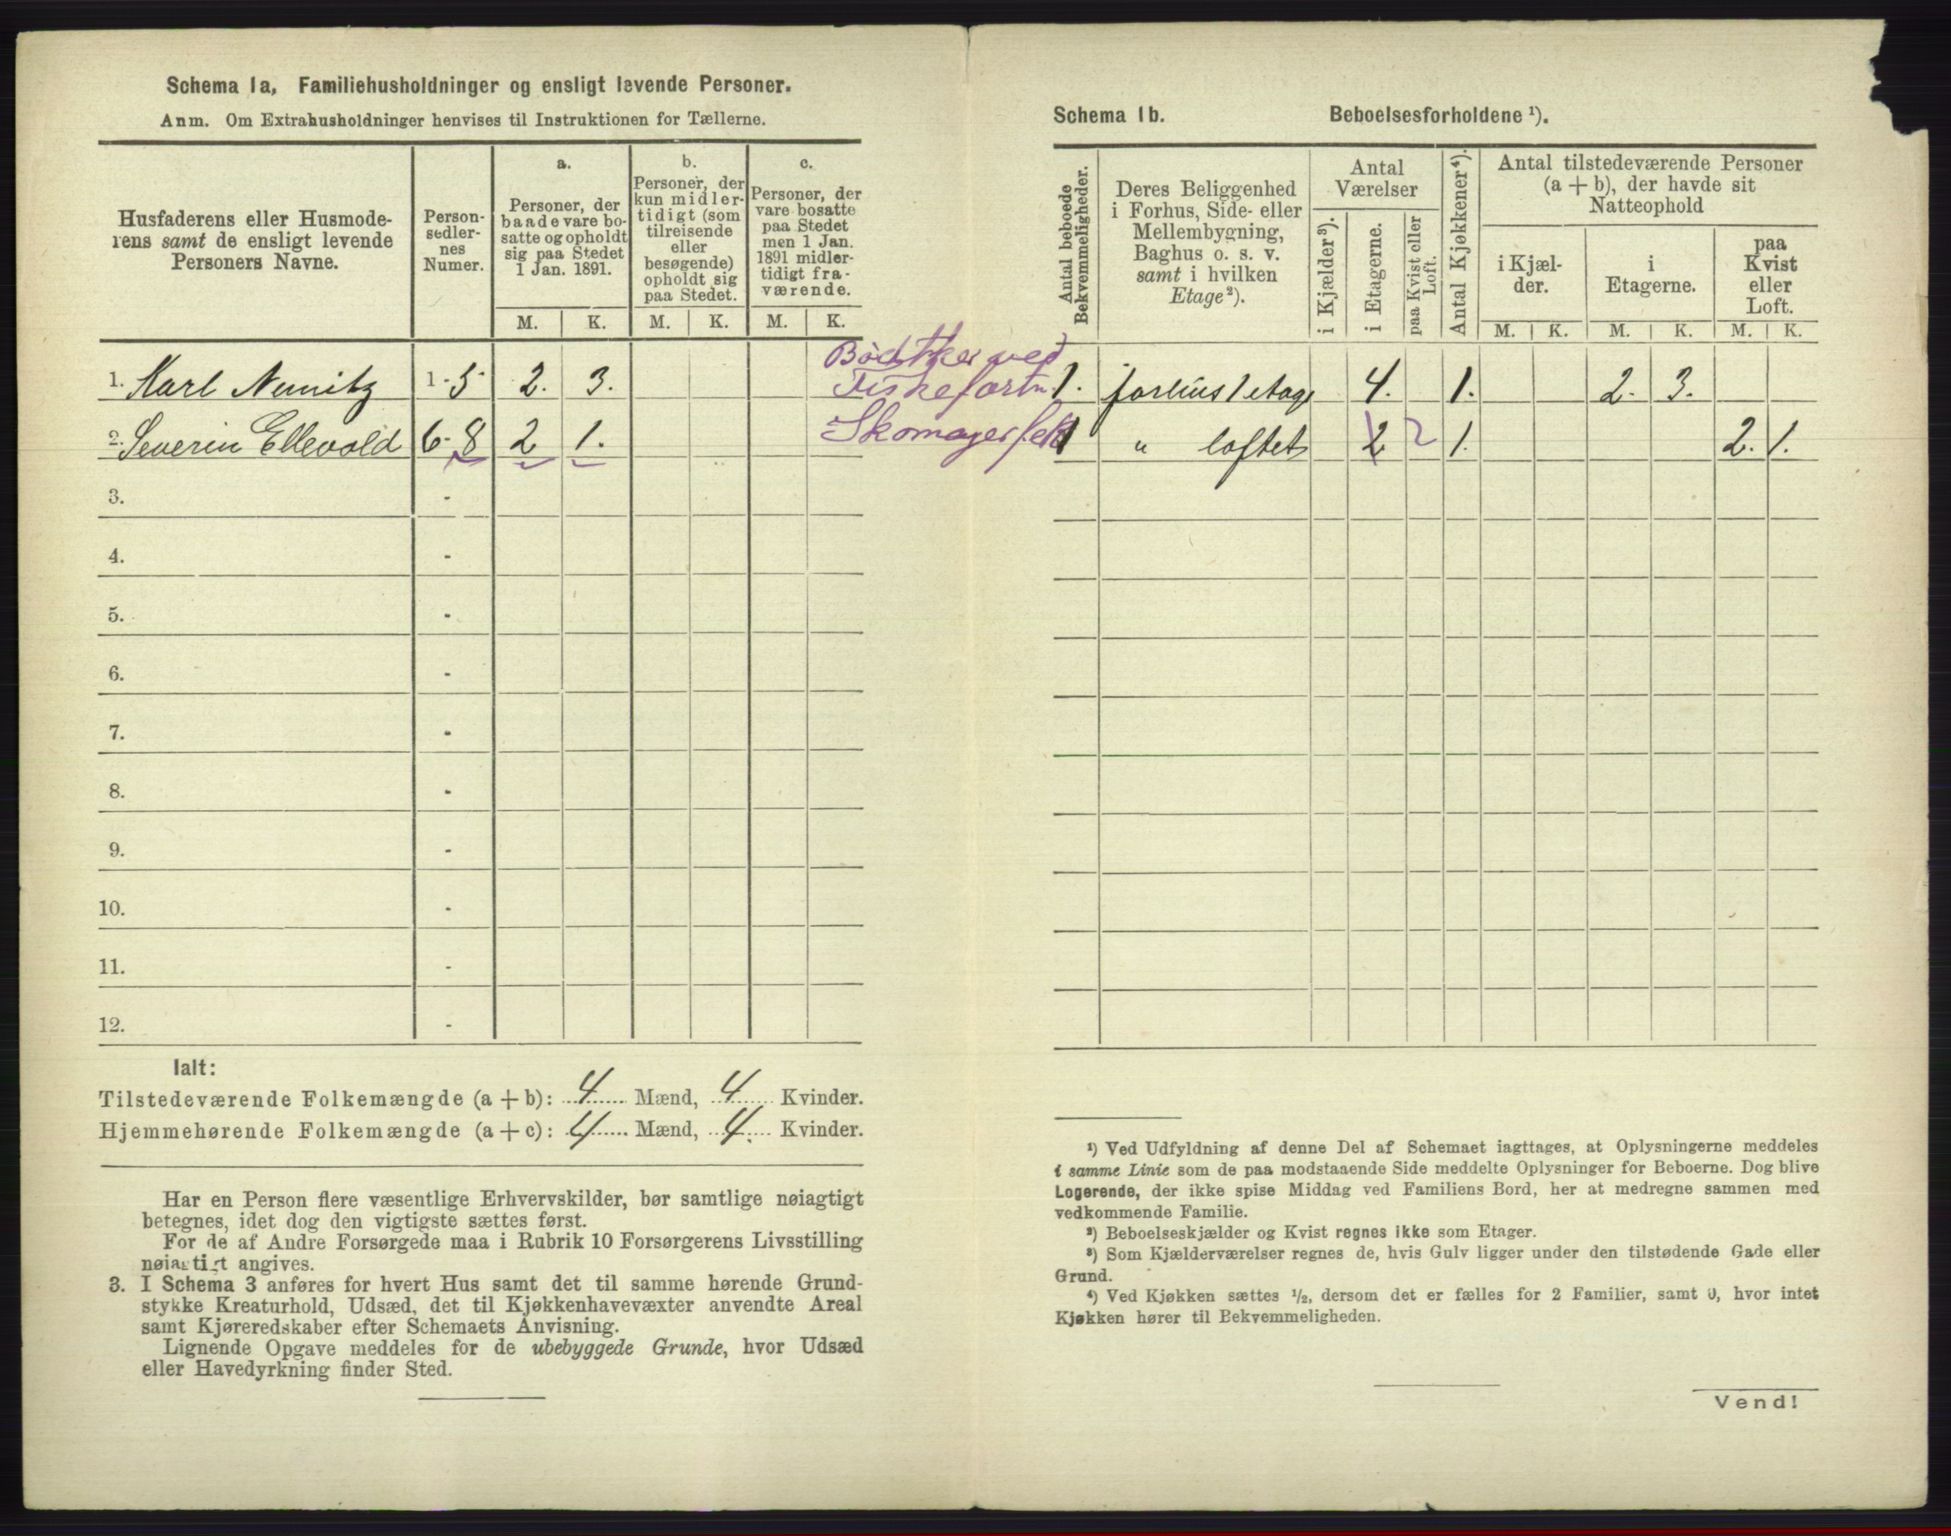 Schema 1a, Familiehusholdninger og ensligt levende Personer.
Anm. Om Extrahusholdninger henvises til Instruktionen for Tællerne.
Husfaderens eller Husmoderens samt de ensligt levende Personers Navne.
Personsedlernes Numer.
a.
Personer, der baade vare bosatte og opholdt sig paa Stedet 1 Jan. 1891.
b.
Personer, der kun midlertidigt (som tilreisende eller besøgende) opholdt sig paa Stedet.
c.
Personer, der vare bosatte paa Stedet men 1 Jan. 1891 midlertidigt fraværende.
M. K. M. K. M. K.
Bødtker ved
1. Karl Nemitz 1-5 2. 3. Fiskeforretn.
2. Severin Ellevold 6-8 2 1. Skomager
3. -
4. -
5. -
6. -
7. -
8. -
9. -
10. -
11. -
12. -
Ialt:
Tilstedeværende Folkemængde (a + b): 4 Mænd, 4 Kvinder.
Hjemmehørende Folkemængde (a + c): 4 Mænd, 4. Kvinder.
Har en Person flere væsentlige Erhvervskilder, bør samtlige nøiagtigt
betegnes, idet dog den vigtigste sættes først.
For de af Andre Forsørgede maa i Rubrik 10 Forsørgerens Livsstilling
nøiagtigt angives.
3. I Schema 3 anføres for hvert Hus samt det til samme hørende Grund-
stykke Kreaturhold, Udsæd, det til Kjøkkenhavevæxter anvendte Areal
samt Kjøreredskaber efter Schemaets Anvisning.
Lignende Opgave meddeles for de ubebyggede Grunde, hvor Udsæd
eller Havedyrkning finder Sted.
Schema 1b. Beboelsesforholdene ¹).
Antal beboede Bekvemmeligheder.
Deres Beliggenhed i Forhus, Side- eller Mellembygning, Baghus o. s. v. samt i hvilken Etage²).
Antal Værelser
i Kjælder³).
i Etagerne.
paa Kvist eller Loft.
Antal Kjøkkener⁴).
Antal tilstedeværende Personer (a + b), der havde sit Natteophold
i Kjælder.
i Etagerne.
paa Kvist eller Loft.
M. K. M. K. M. K.
1. forhus 1 etage 4. 1. 2. 3.
1 " loftet 2 2 1. 2. 1.
¹) Ved Udfyldning af denne Del af Schemaet iagttages, at Oplysningerne meddeles
i samme Linie som de paa modstaaende Side meddelte Oplysninger for Beboerne. Dog blive
Logerende, der ikke spise Middag ved Familiens Bord, her at medregne sammen med
vedkommende Familie.
²) Beboelseskjælder og Kvist regnes ikke som Etager.
³) Som Kjælderværelser regnes de, hvis Gulv ligger under den tilstødende Gade eller
Grund.
⁴) Ved Kjøkken sættes ½, dersom det er fælles for 2 Familier, samt 0, hvor intet
Kjøkken hører til Bekvemmeligheden.
Vend!